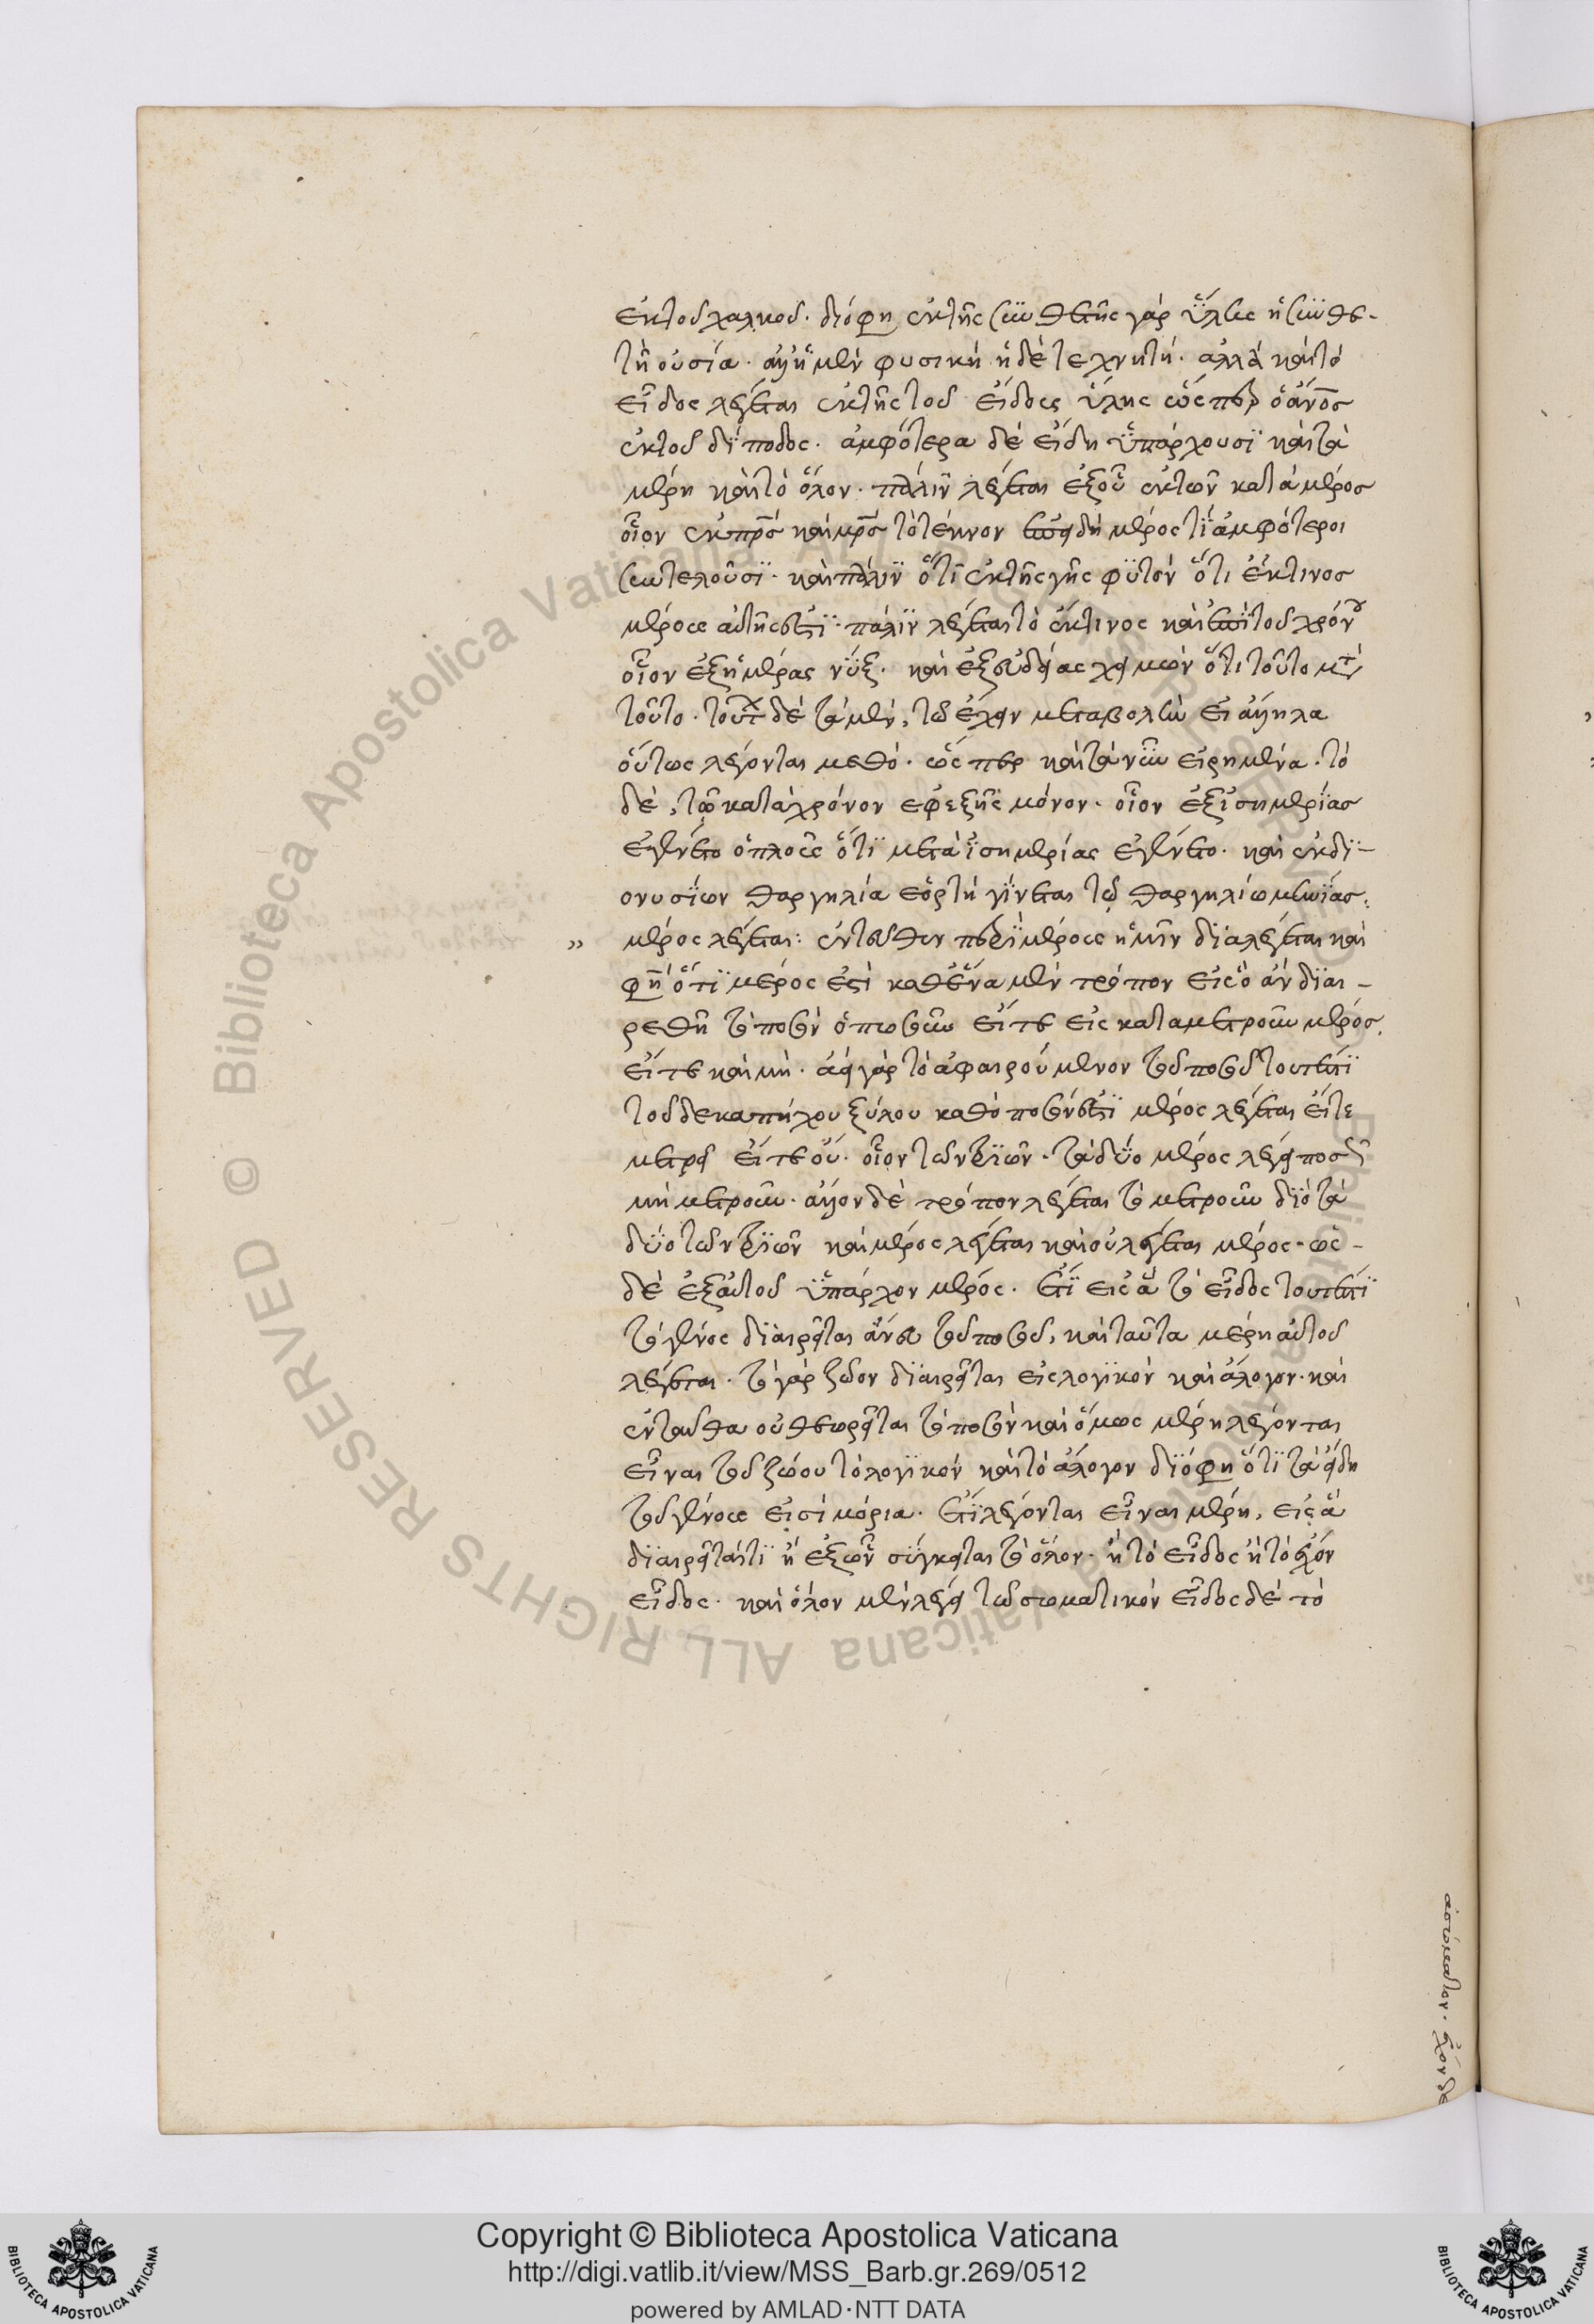 ἐκ τοῦ χαλκοῦ. διό φη ἐκ τῆς συνθετῆς γὰρ ὕλης ἡ συνθε-
τὴ οὐσία. ἀλλ' ἡ μὲν φυσικὴ ἡ δὲ τεχνητή. ἀλλὰ καὶ τὸ
εἶδος λέγεται ἐκ τῆς τοῦ εἴδους ὕλης ὥσπερ ὁ ἄνος
ἐκ τοῦ δίποδος. ἀμφότερα δὲ εἴδη ὑπάρχουσι καὶ τὰ
μέρη καὶ τὸ ὅλον. πάλιν λέγεται ἐξ οὗ ἐκ τῶν κατὰ μέρος
οἷον ἐκ πρς καὶ μρς τὸ τέκνον ἐπειδὴ μέρος τι ἀμφότεροι
συντελοῦσι. καὶ πάλιν ὅτι ἐκ τῆς γῆς φυτὸν ὅτι ἔκ τινος
μέρους αὐτῆς ἐστι. πάλιν λέγεται τὸ ἔκ τινος καὶ ἐπὶ τοῦ χρόνου
οἷον ἐξ ἡμέρας νύξ. καὶ ἐξ εὐδίας χειμών ὅτι τοῦτο μετὰ
τοῦτο. τούτων δὲ τὰ μὲν, τῷ ἔχειν μεταβολὴν εἰς ἄλληλα
οὕτως λέγονται μεθό. ὥσπερ καὶ τὰ νῦν εἰρημένα. τὸ
δὲ, τῷ κατὰ χρόνον ἐφεξῆς μόνον. οἷον ἐξ ἰσημερίας
ἐγένετο ὁ πλοῦς ὅτι μετὰ ἰσημερίας ἐγένετο. καὶ ἐκ δι-
ονυσίων θαργήλια ἑορτὴ γίνεται τῷ θαργηλιῶνι
» μέρος λέγεται: ἐντεῦθεν περὶ μέρους ἡμῖν διαλέγεται καὶ
φη ὅτι μέρος ἐστὶ καθ' ἕνα μὲν τρόπον εἰς ὃ ἂν διαι-
ρεθῇ τὸ ποσὸν ὁπωσοῦν εἴτε εἰς καταμετροῦν μέρος
εἴτε καὶ μή. ἀεὶ γὰρ τὸ ἀφαιρούμενον τοῦ ποσοῦ τουτέστι
τοῦ δεκαπήχου ξύλου καθὸ ποσόν ἐστι μέρος λέγεται εἴτε
μετρεῖ εἴτε οὔ. οἷον τῶν τριῶν. τὰ δύο μέρος λέγει
μὴ μετροῦν. ἄλλον δὲ τρόπον λέγεται τὸ μετροῦν διὸ τὰ
δύο τῶν τριῶν καὶ μέρος λέγεται καὶ οὐ λέγεται μέρος. ὡς-
δὲ ἐξ αὐτοῦ ὑπάρχον μέρος. ἔτι εἰς ἃ τὸ εἶδος τουτέστι
τὸ γένος διαιρεῖται ἄνευ τοῦ ποσοῦ, καὶ ταῦτα μέρη αὐτοῦ
λέγεται. τὸ γὰρ ζῶον διαιρεῖται εἰς λογικὸν καὶ ἄλογον. καὶ
ἐνταῦθα οὐ θεωρεῖται τὸ ποσὸν καὶ ὅμως μέρη λέγονται
εἶναι τοῦ ζώου τὸ λογικὸν καὶ τὸ ἄλογον διό φη ὅτι τὰ εἴδη
τοῦ γένους εἰσὶ μόρια. ἔτι λέγονται εἶναι μέρη, εἰς ἃ
διαιρεῖταί τι ἢ ἐξ ὧν σύγκειται τὸ ὅλον. ἢ τὸ εἶδος ἢ τὸ ἔχον
εἶδος. καὶ ὅλον μὲν λέγει τῶ σωματικὸν εἶδος δὲ τὸ
ἀσώματον. ἔχον δὲ
© Biblioteca Apostolica Vaticana ALL RIGHTS RESERVED
Copyright © Biblioteca Apostolica Vaticana
http://digi.vatlib.it/view/MSS_Barb.gr.269/0512
powered by AMLAD·NTT DATA
BIBLIOTECA APOSTOLICA VATICANA
BIBLIOTECA APOSTOLICA VATICANA